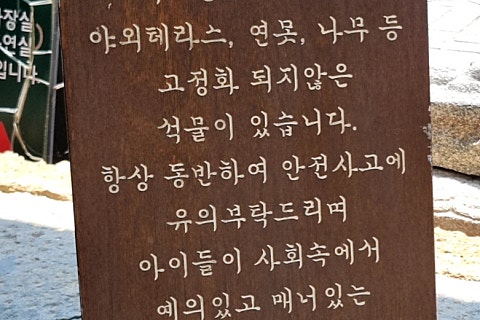 장실
연실
입니다.
야외테라스, 연못, 나무 등
고정화 되지않은
석물이 있습니다.
항상 동반하여 안전사고에
유의부탁드리며
아이들이 사회속에서
예의있고 매너있는